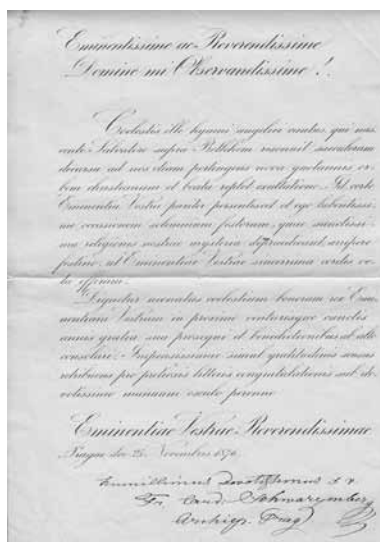 Eminentissime ac Reverendissime
Domine mi Observandissime!
Coelestis ille hymni angelici cantus, qui nas-
cente Salvatore supra Bethlehem resonuit saeculorum
decursu ad nos etiam pertingens nova quotannis or-
bem christianum et beata replet exultatione. Id certo
Eminentia Vestra pariter persentiscet et ego lubentissi-
me occasionem solemnium festorum, quae sanctissi-
ma religionis nostrae mysteria arripere
festino, ut Eminentiae Vestrae sincerrima cordis vo-
ta offeram.
Dignetur neonatus coelestium bonorum rex Emi-
nentiam Vestram in proximo venturisque cunctis
annis gratia sua prosequi et benedictionibus ab alto
consolari. Impensissimos simul gratitudinis sensus
retribuens pro pretiosis litteris congratulationis sub de-
votissimo manuum osculo persevero
Eminentiae Vestrae Reverendissimae
Pragae die 25. Novembris 1876.
humillimus devotissimus
Fr. Card. Schwarzenberg
Archiep. Prag